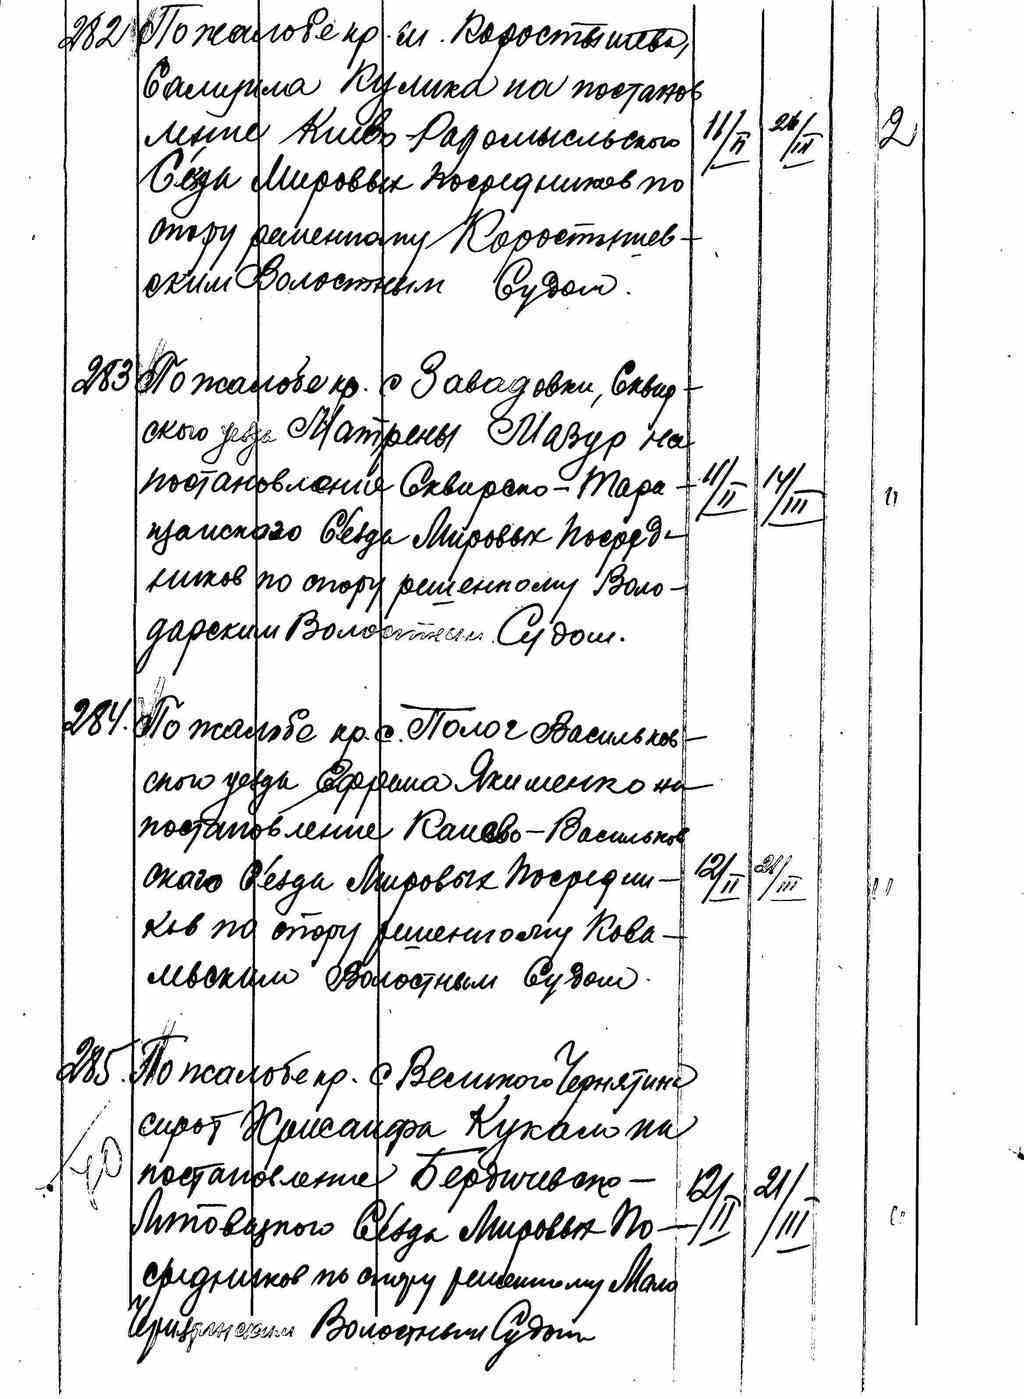 282 По жалобе кр. м. Коростышева,
Самуила Кулика на постанов
ление Киево-Радомысльского 11/II 26/III 2
Съезда Мировых Посредников по
спору решенному Коростышев-
ским Волостным Судом.
283 По жалобе кр. с Завадовки, Сквир-
ского уезда Матрены Мазур на
постановление Сквирско-Тара- 11/II 14/III "
щанского Съезда Мировых Посред-
ников по спору решенному Воло-
дарским Волостным Судом.
284. По жалобе кр. с. Полог Васильков-
ского уезда Ефрема Якименко на
постановление Каневo-Васильков
скаго Съезда Мировых Посредни- 12/II 21/III "
ков по спору решенному Кова-
левским Волостным Судом.
285. По жалобе кр. с Великого Чернятина
сирот Хрисанфа Кукало на
постановление Бердичевско-
Липовецкого Съезда Мировых По- 12/II 21/III "
средников по спору решенному Мало
Чернятинским Волостным Судом